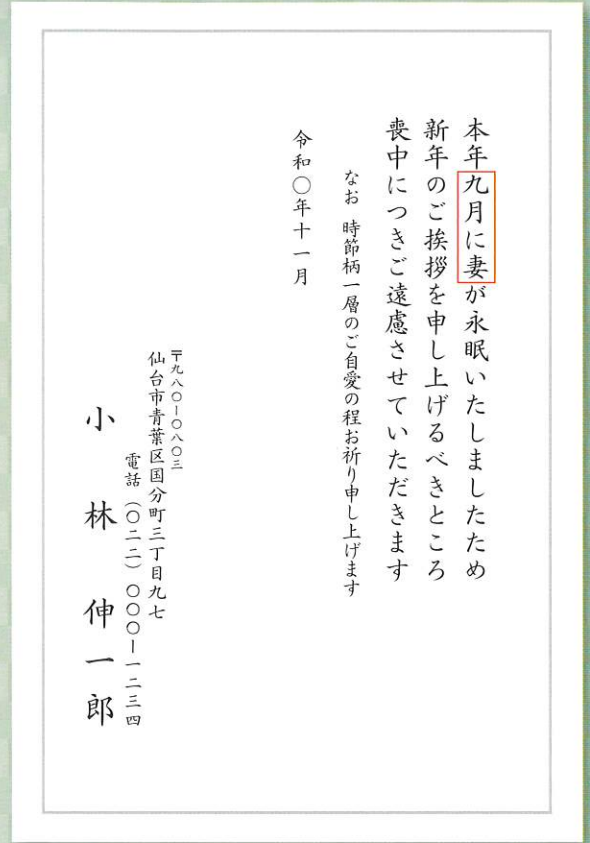 本年九月に妻が永眠いたしましたため
新年のご挨拶を申し上げるべきところ
喪中につきご遠慮させていただきます
なお 時節柄一層のご自愛の程お祈り申し上げます
令和〇年十一月
〒九八〇ー〇八〇三
仙台市青葉区国分町三丁目九七
電話(〇二二)〇〇〇ー一二三四
小林伸一郎